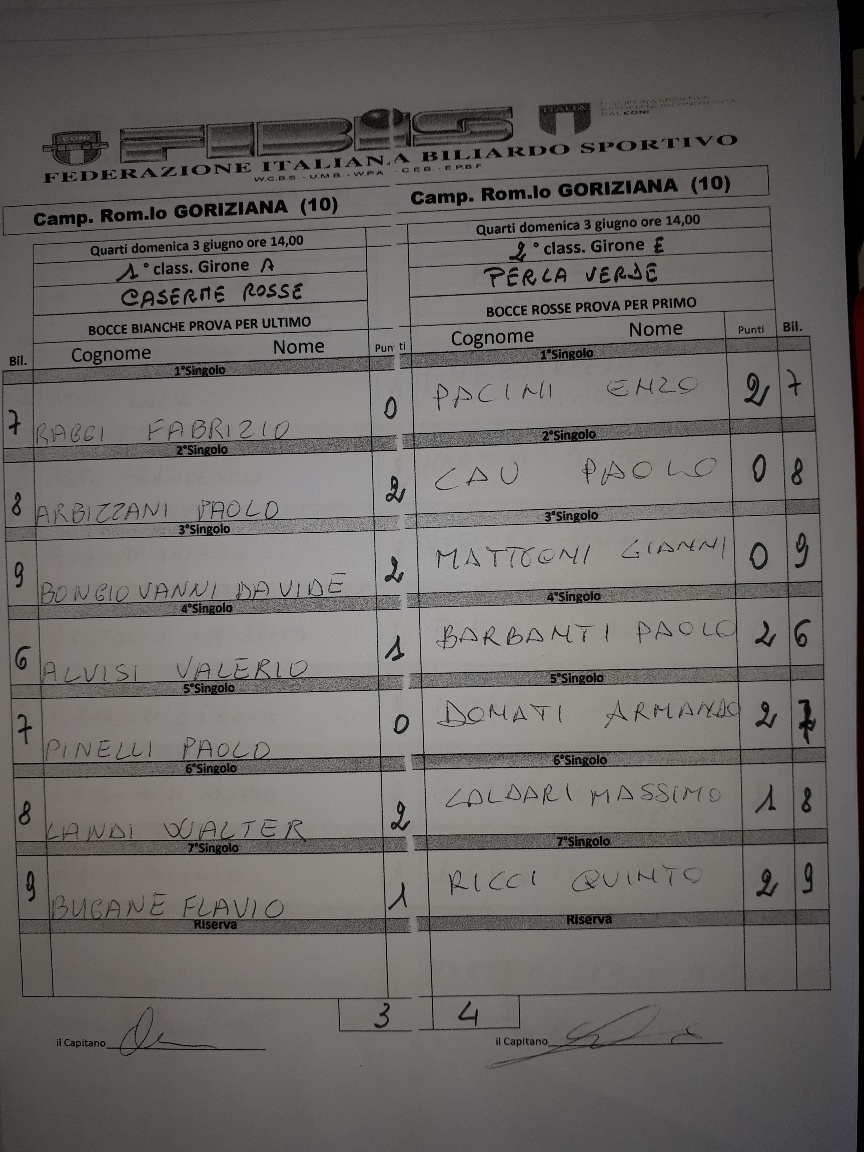 FIBiS ITALIA
FEDERAZIONE ITALIANA BILIARDO SPORTIVO
W.C.B.S - U.M.B - W.P.A - C.E.B - E.P.B.F
Camp. Rom.lo GORIZIANA (10)
Quarti domenica 3 giugno ore 14,00
1° class. Girone A
CASERME ROSSE
BOCCE BIANCHE PROVA PER ULTIMO
Bil. Cognome Nome Punti
1°Singolo
7 RAGGI FABRIZIO 0
2°Singolo
8 ARBIZZANI PAOLO 2
3°Singolo
9 BONGIOVANNI DAVIDE 2
4°Singolo
6 ALVISI VALERIO 1
5°Singolo
7 PINELLI PAOLO 0
6°Singolo
8 LANDI WALTER 2
7°Singolo
9 BUGANE FLAVIO 1
Riserva
3
il Capitano
Camp. Rom.lo GORIZIANA (10)
Quarti domenica 3 giugno ore 14,00
2° class. Girone E
PERLA VERDE
BOCCE ROSSE PROVA PER PRIMO
Cognome Nome Punti Bil.
1°Singolo
PACINI ENZO 2 7
2°Singolo
CAU PAOLO 0 8
3°Singolo
MATTIONI GIANNI 0 9
4°Singolo
BARBANTI PAOLO 2 6
5°Singolo
DONATI ARMANDO 2 7
6°Singolo
CALDARI MASSIMO 1 8
7°Singolo
RICCI QUINTO 2 9
Riserva
4
il Capitano